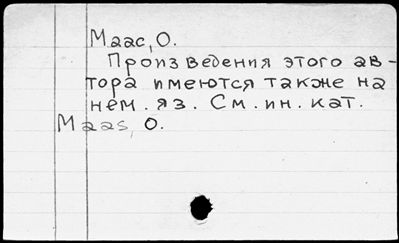 Маас, О.
Произведения этого ав-
тора имеются также на
нем. яз. См. ин. кат.
Maas, O.